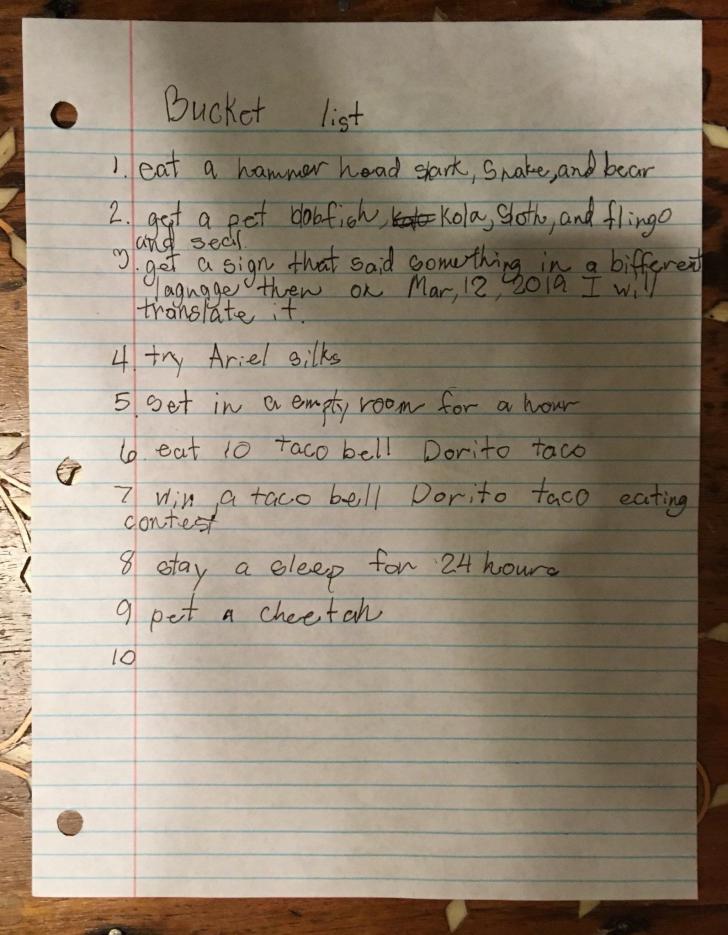 Bucket list
1. eat a hammer head shark, Snake, and bear
2. get a pet blobfish, Kola, Sloth, and flingo
and seal
3. get a sign that said something in a bifferent
lagnqge then on Mar, 12, 2019 I will
translate it.
4. try Ariel silks
5. set in a empty room for a hour
6. eat 10 taco bell Dorito taco
7 win a taco bell Dorito taco eating
contest
8 stay a sleep for 24 hours
9 pet a cheetah
10